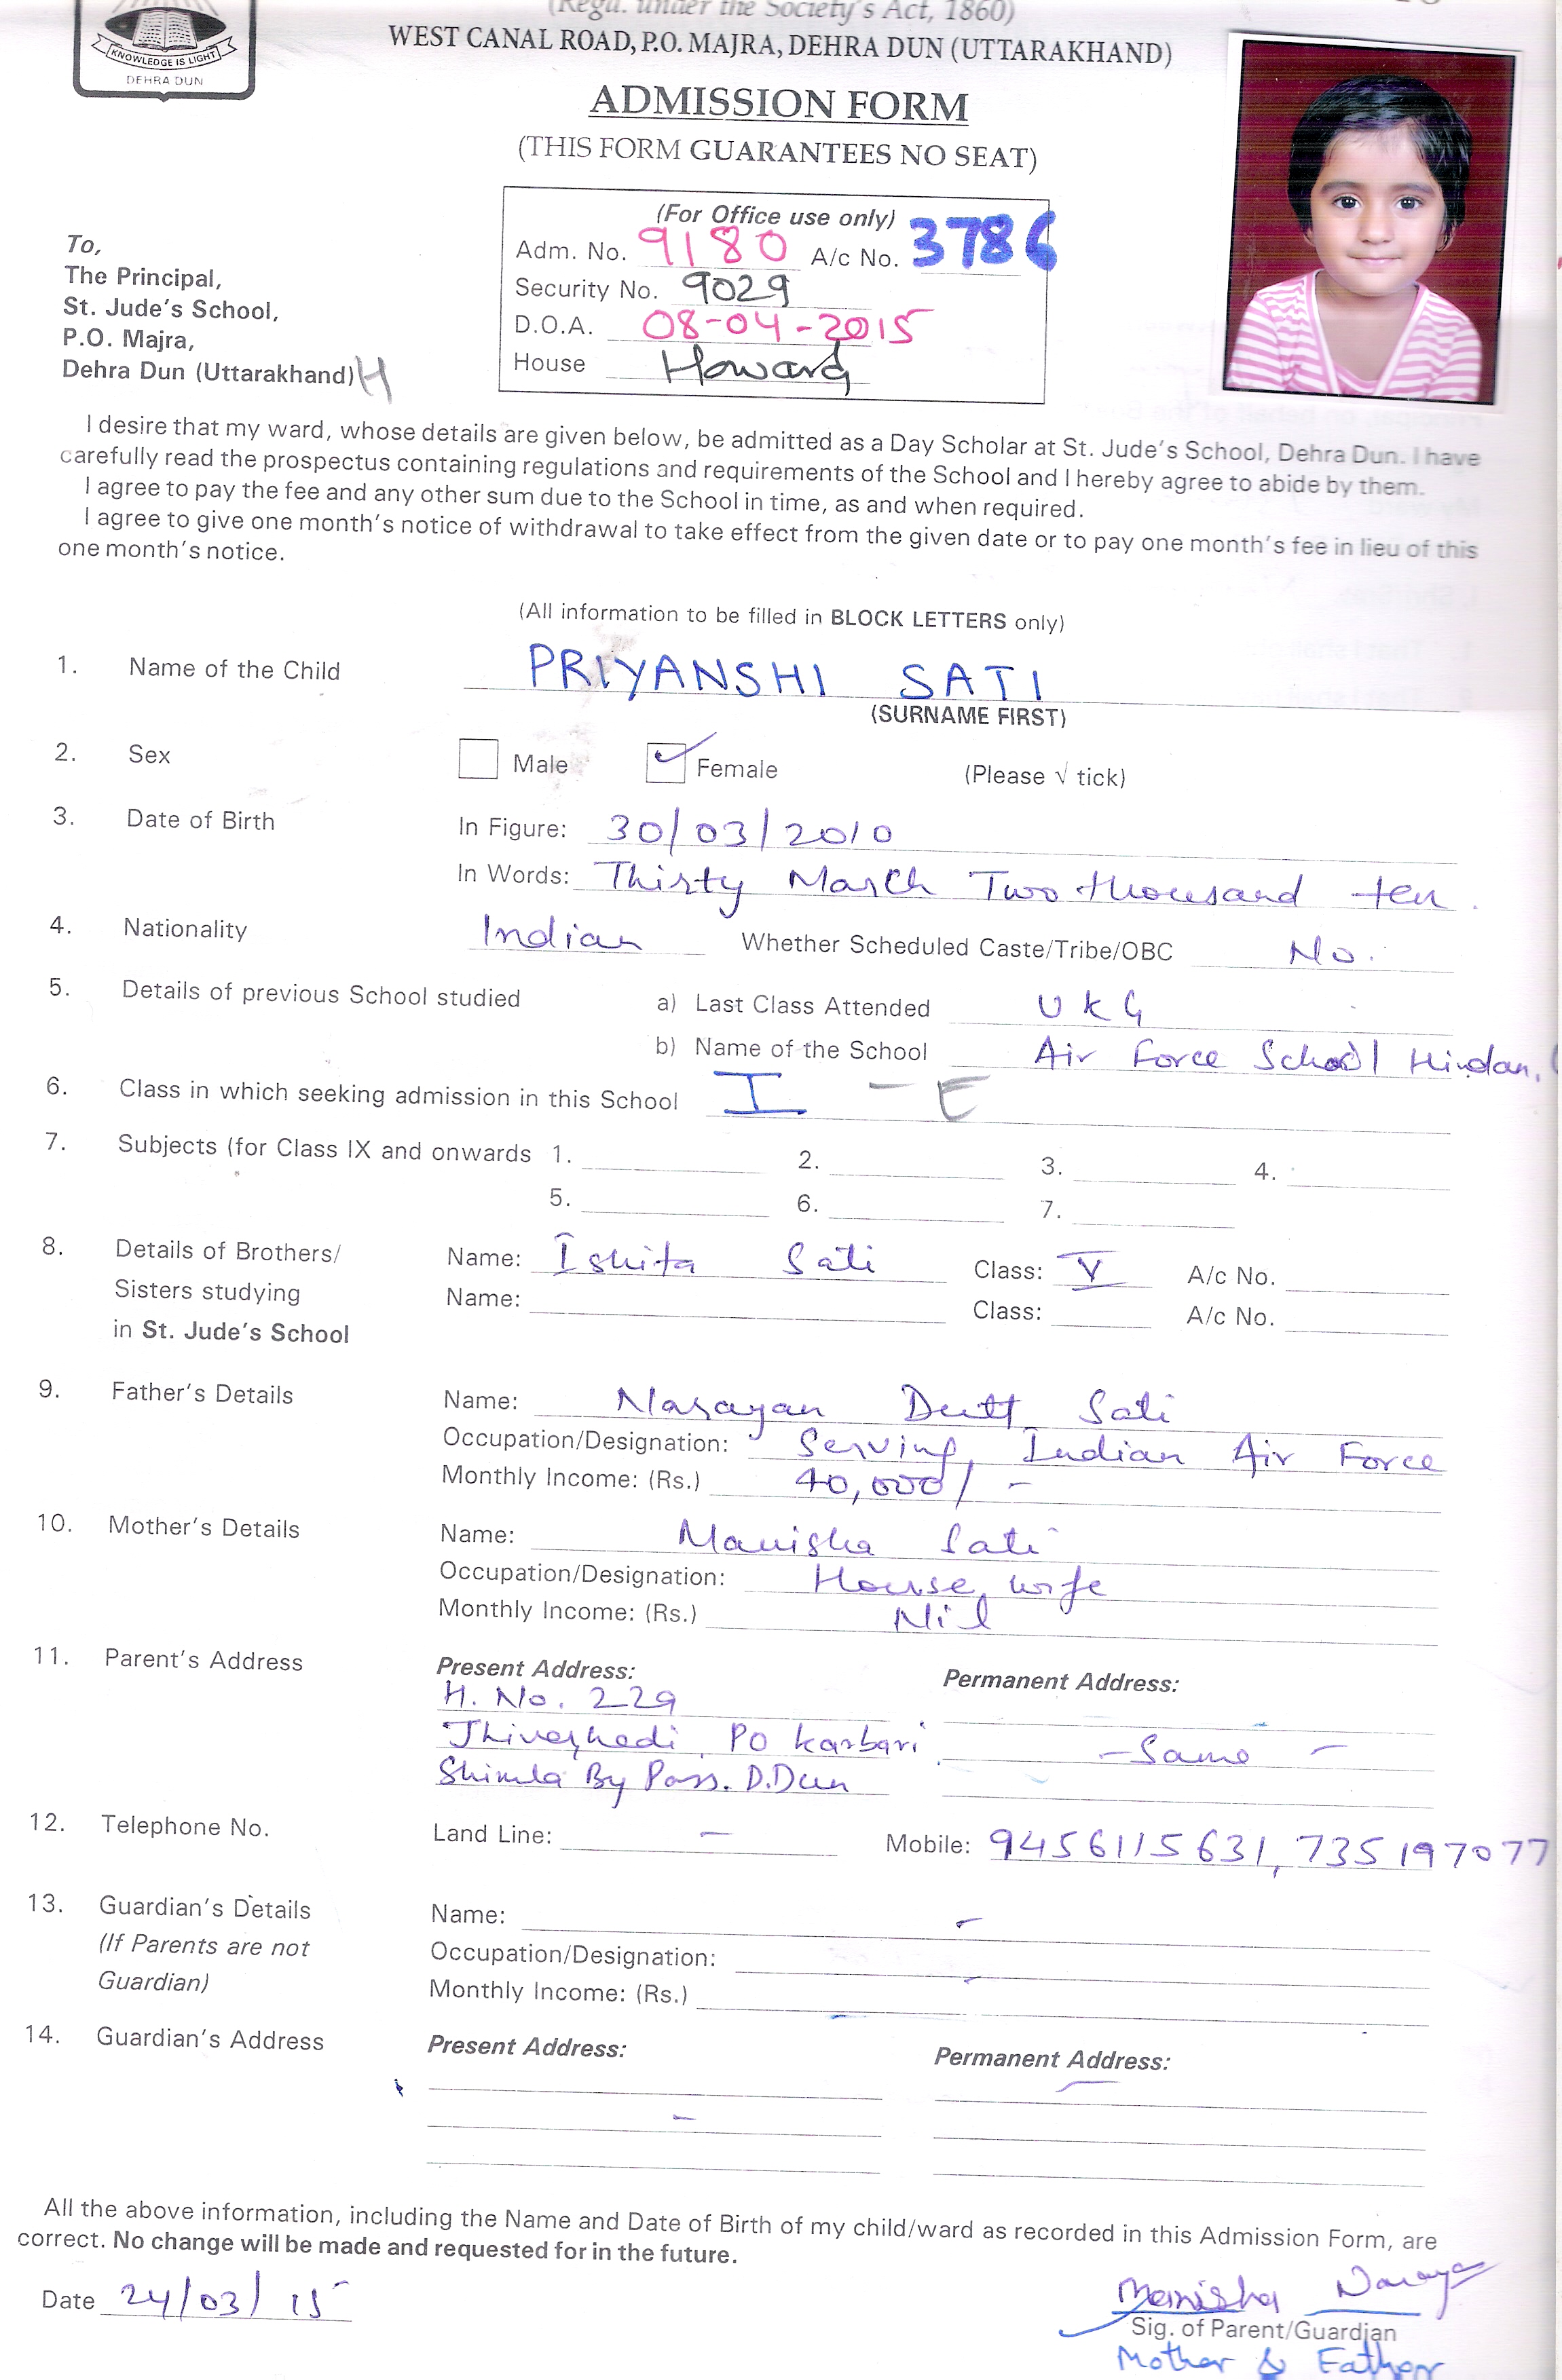 (Regd. under the Society's Act, 1860)
WEST CANAL ROAD, P.O. MAJRA, DEHRA DUN (UTTARAKHAND)
KNOWLEDGE IS LIGHT
DEHRA DUN
ADMISSION FORM
(THIS FORM GUARANTEES NO SEAT)
(For Office use only)
Adm. No. 9180 A/c No. 3786
Security No. 9029
D.O.A. 08-04-2015
House Howard
To,
The Principal,
St. Jude's School,
P.O. Majra,
Dehra Dun (Uttarakhand) H
I desire that my ward, whose details are given below, be admitted as a Day Scholar at St. Jude's School, Dehra Dun. I have
carefully read the prospectus containing regulations and requirements of the School and I hereby agree to abide by them.
I agree to pay the fee and any other sum due to the School in time, as and when required.
I agree to give one month's notice of withdrawal to take effect from the given date or to pay one month's fee in lieu of this
one month's notice.
(All information to be filled in BLOCK LETTERS only)
1. Name of the Child PRIYANSHI SATI
(SURNAME FIRST)
2. Sex Male Female (Please √ tick)
3. Date of Birth In Figure: 30/03/2010
In Words: Thirty March Two thousand ten.
4. Nationality Indian Whether Scheduled Caste/Tribe/OBC No.
5. Details of previous School studied a) Last Class Attended UKG
b) Name of the School Air Force School Hindon,
6. Class in which seeking admission in this School I - E
7. Subjects (for Class IX and onwards 1. 2. 3. 4.
5. 6. 7.
8. Details of Brothers/ Name: Ishita Sati Class: V A/c No.
Sisters studying Name: Class: A/c No.
in St. Jude's School
9. Father's Details Name: Narayan Dutt Sati
Occupation/Designation: Serving, Indian Air Force
Monthly Income: (Rs.) 40,000/-
10. Mother's Details Name: Manisha Sati
Occupation/Designation: House wife
Monthly Income: (Rs.) Nil
11. Parent's Address Present Address: Permanent Address:
H. No. 229
PO Karbari - Same -
Shimla By Pass. D.Dun
12. Telephone No. Land Line: - Mobile: 9456115631, 7351197077
13. Guardian's Details Name: -
(If Parents are not Occupation/Designation: -
Guardian) Monthly Income: (Rs.) -
14. Guardian's Address Present Address: Permanent Address:
All the above information, including the Name and Date of Birth of my child/ward as recorded in this Admission Form, are
correct. No change will be made and requested for in the future.
Date 24/03/15
Manisha Narayan
Sig. of Parent/Guardian
Mother & Father